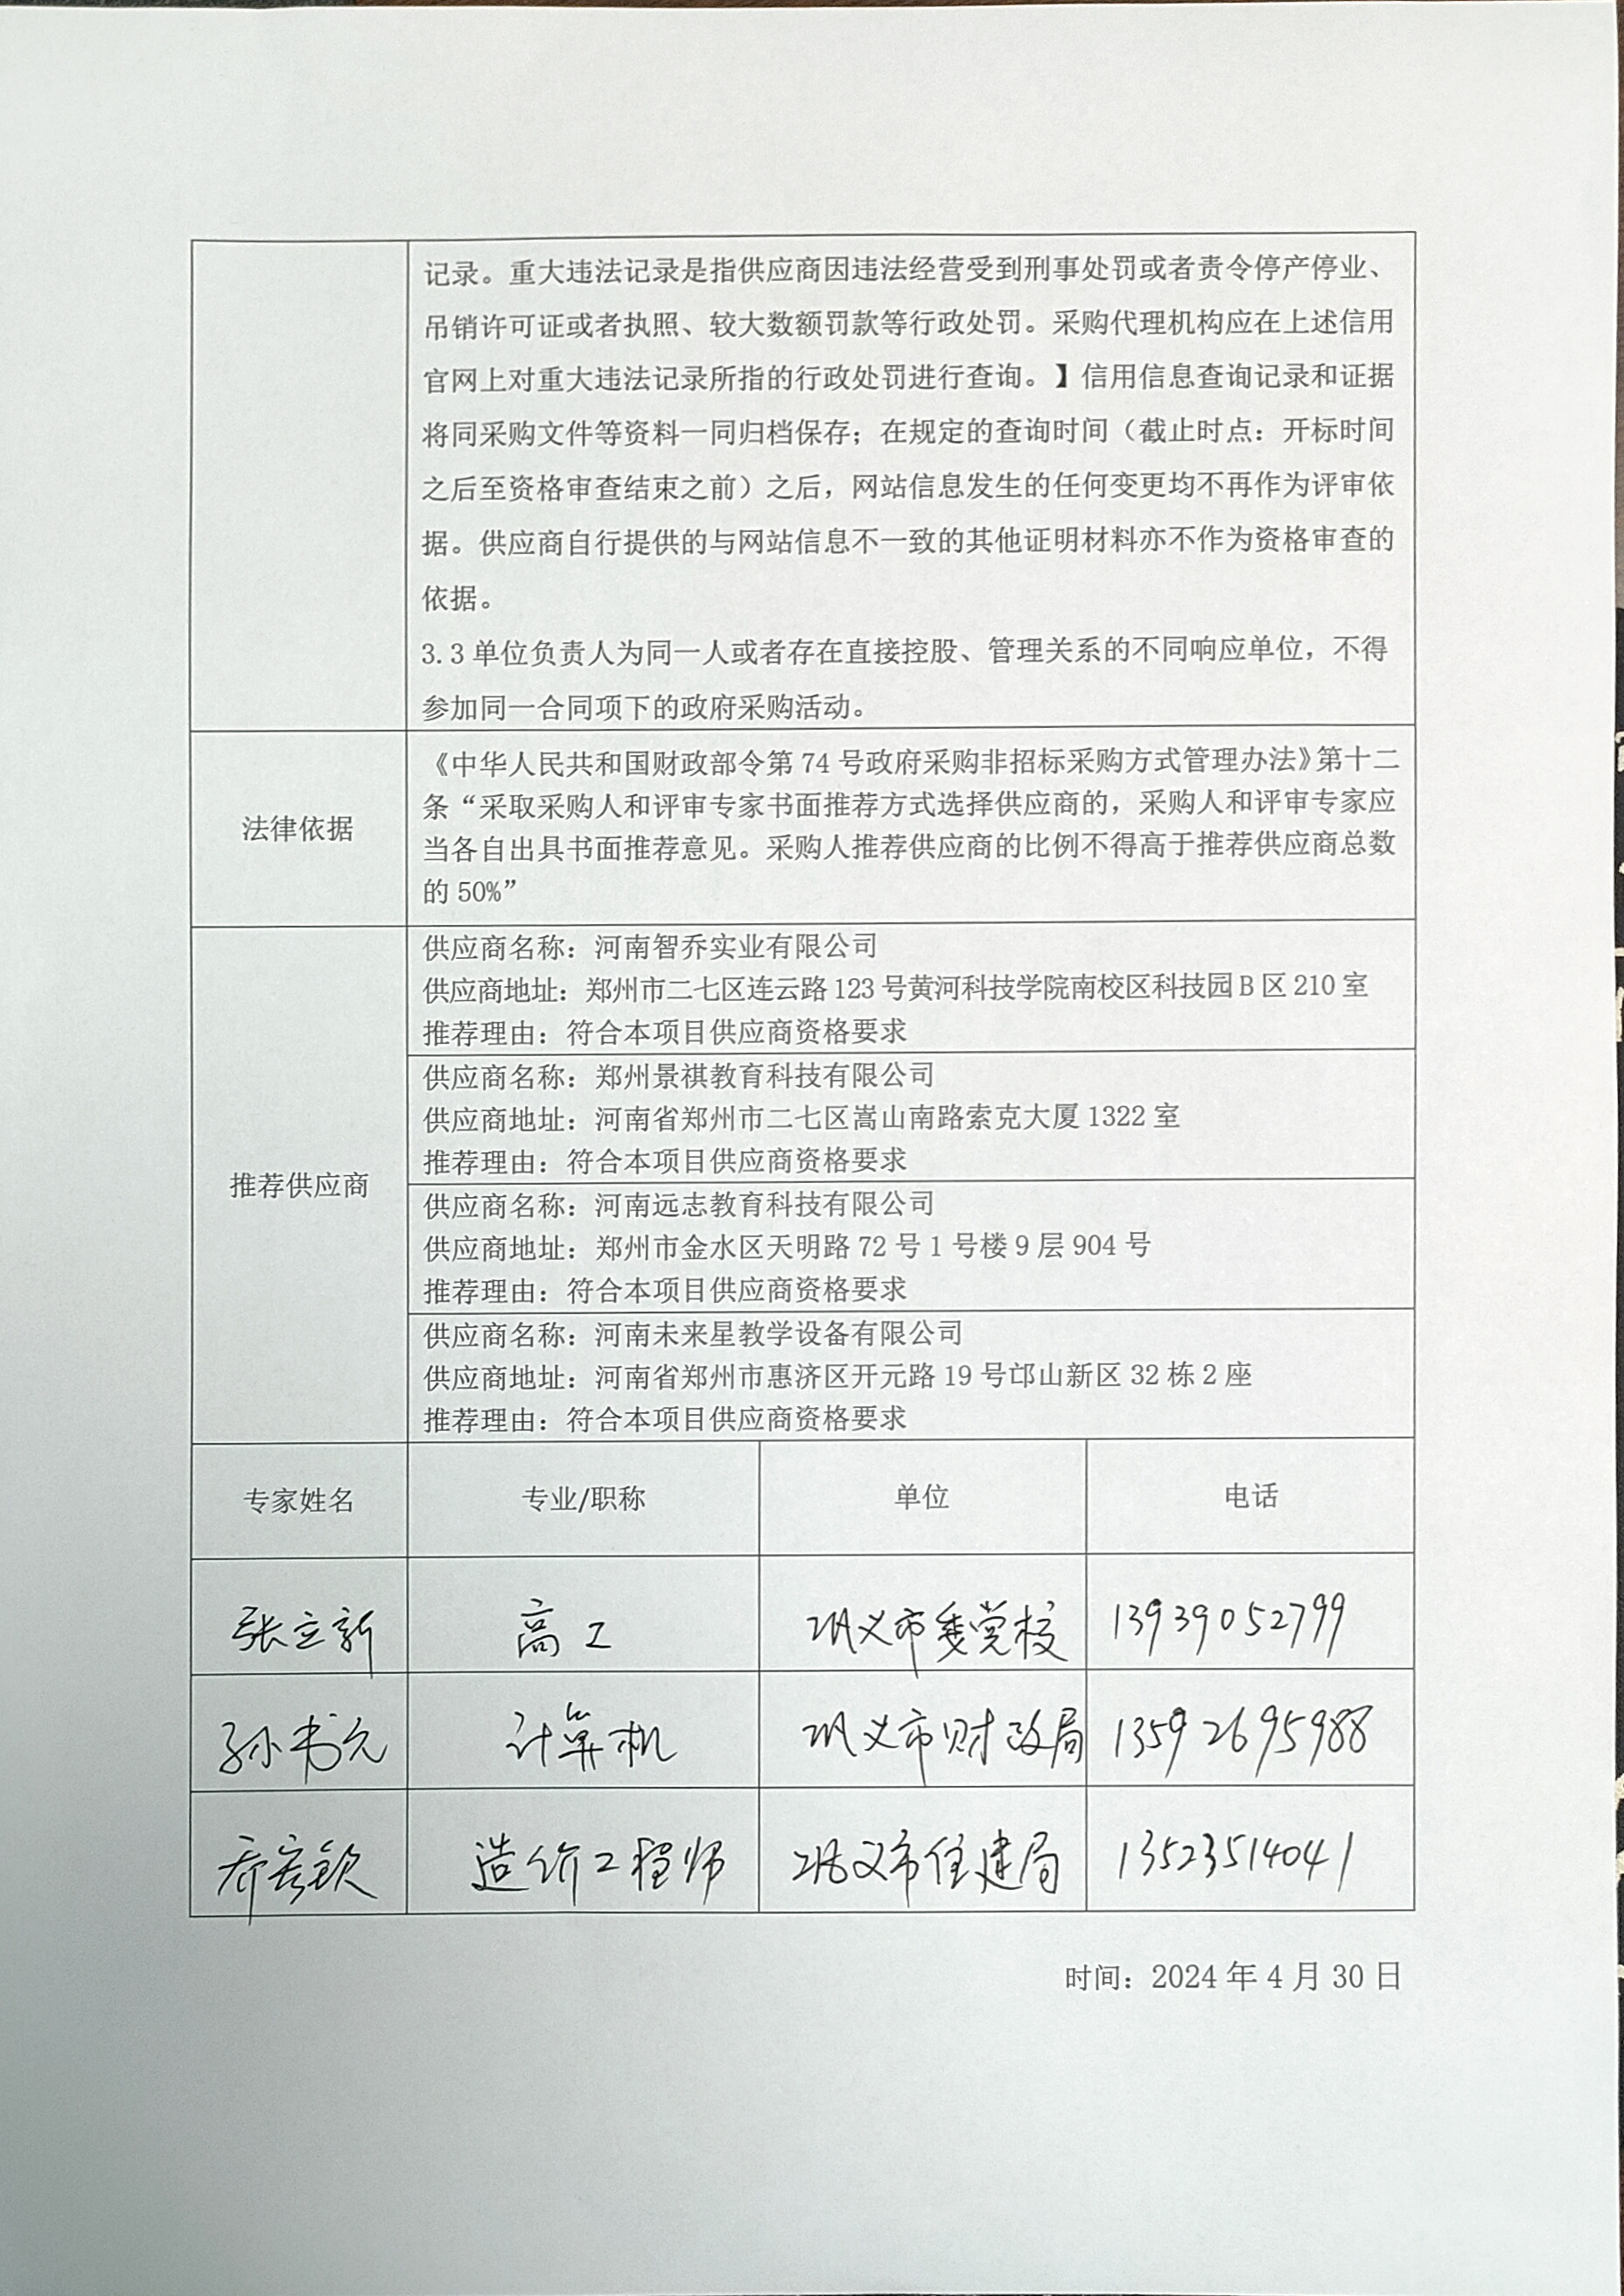 记录。重大违法记录是指供应商因违法经营受到刑事处罚或者责令停产停业、
吊销许可证或者执照、较大数额罚款等行政处罚。采购代理机构应在上述信用
官网上对重大违法记录所指的行政处罚进行查询。】信用信息查询记录和证据
将同采购文件等资料一同归档保存；在规定的查询时间（截止时点：开标时间
之后至资格审查结束之前）之后，网站信息发生的任何变更均不再作为评审依
据。供应商自行提供的与网站信息不一致的其他证明材料亦不作为资格审查的
依据。
3.3 单位负责人为同一人或者存在直接控股、管理关系的不同响应单位，不得
参加同一合同项下的政府采购活动。
法律依据
《中华人民共和国财政部令第 74 号政府采购非招标采购方式管理办法》第十二
条“采取采购人和评审专家书面推荐方式选择供应商的，采购人和评审专家应
当各自出具书面推荐意见。采购人推荐供应商的比例不得高于推荐供应商总数
的 50%”
推荐供应商
供应商名称：河南智乔实业有限公司
供应商地址：郑州市二七区连云路 123 号黄河科技学院南校区科技园 B 区 210 室
推荐理由：符合本项目供应商资格要求
供应商名称：郑州景祺教育科技有限公司
供应商地址：河南省郑州市二七区嵩山南路索克大厦 1322 室
推荐理由：符合本项目供应商资格要求
供应商名称：河南远志教育科技有限公司
供应商地址：郑州市金水区天明路 72 号 1 号楼 9 层 904 号
推荐理由：符合本项目供应商资格要求
供应商名称：河南未来星教学设备有限公司
供应商地址：河南省郑州市惠济区开元路 19 号邙山新区 32 栋 2 座
推荐理由：符合本项目供应商资格要求
专家姓名 专业/职称 单位 电话
张立新 高工 巩义市委党校 13939052799
孙书元 计算机 巩义市财政局 13592695988
造价工程师 巩义市住建局 13523514041
时间：2024 年 4 月 30 日